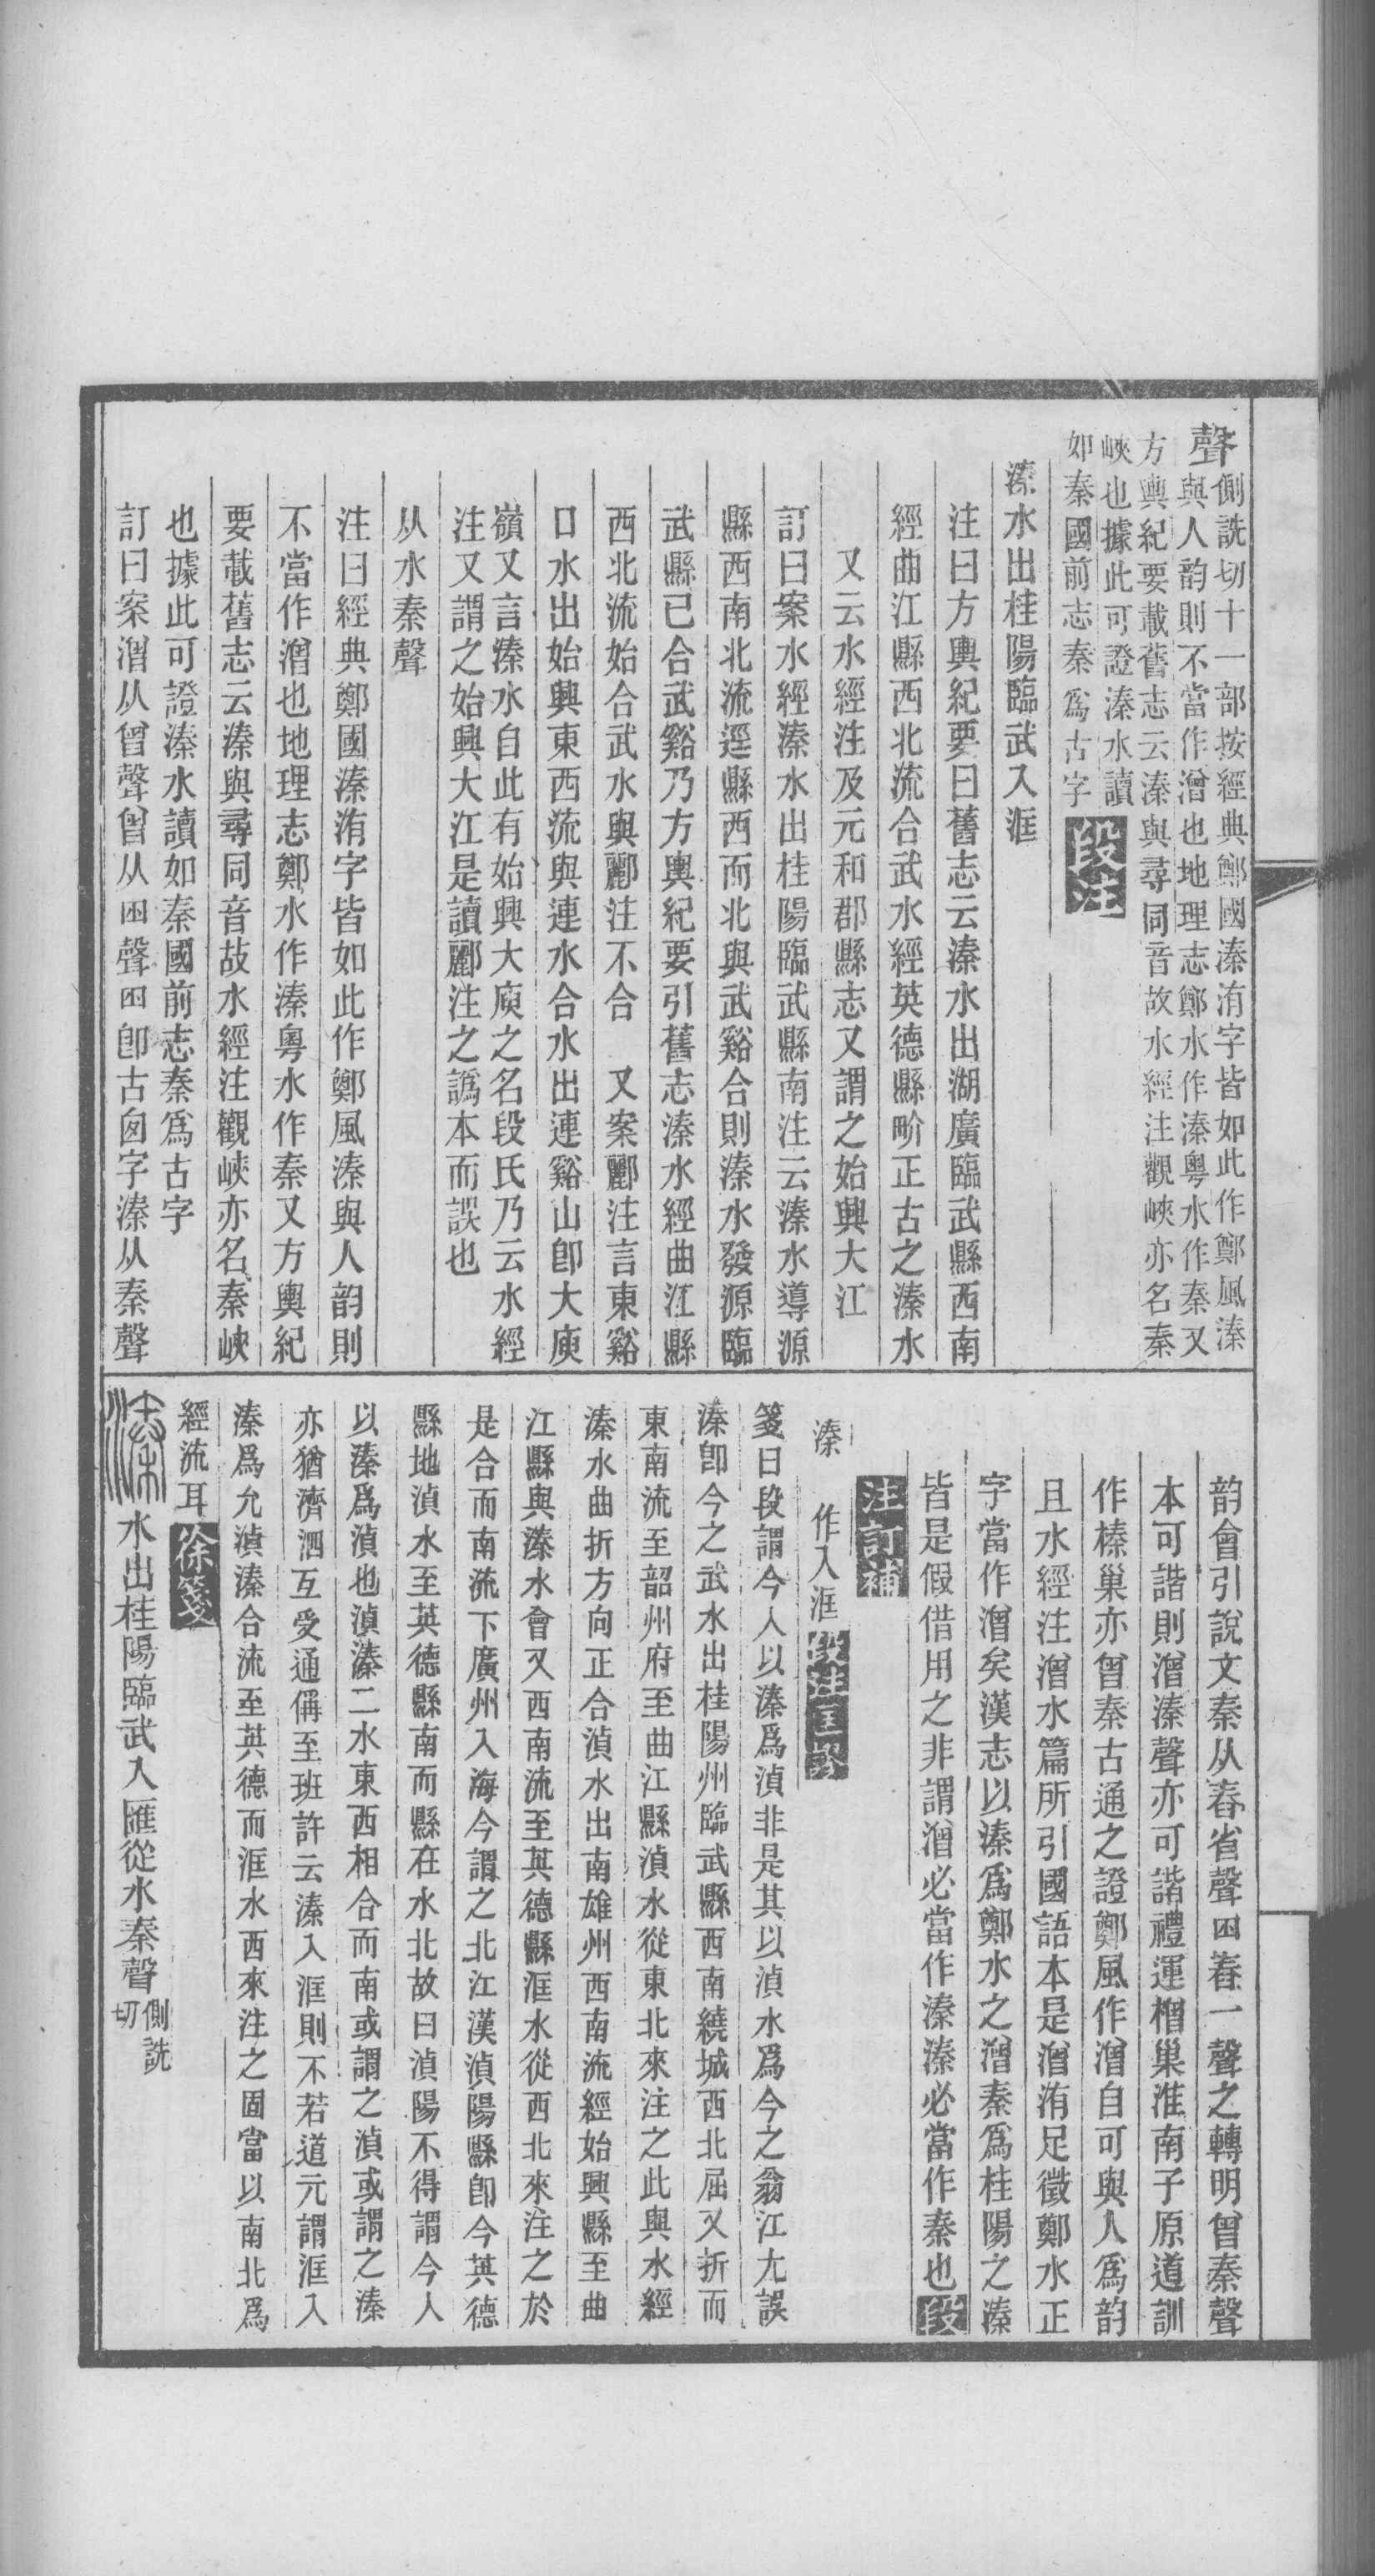 聲側詵切十一部按經典鄭國溱洧字皆如此作鄭風溱
與人韵則不當作潧也地理志鄭水作溱粵水作秦又
方輿紀要載舊志云溱與尋同音故水經注觀峽亦名秦
峽也據此可證溱水讀
如秦國前志秦爲古字段注
溱水出桂陽臨武入洭
注曰方輿紀要曰舊志云溱水出湖廣臨武縣西南
經曲江縣西北流合武水經英德縣畍正古之溱水
又云水經注及元和郡縣志又謂之始興大江
訂曰案水經溱水出桂陽臨武縣南注云溱水導源
縣西南北流逕縣西而北與武谿合則溱水發源臨
武縣已合武谿乃方輿紀要引舊志溱水經曲江縣
西北流始合武水與酈注不合 又案酈注言東谿
口水出始興東西流與連水合水出連谿山卽大庾
嶺又言溱水自此有始興大庾之名段氏乃云水經
注又謂之始興大江是讀酈注之譌本而誤也
从水秦聲
注曰經典鄭國溱洧字皆如此作鄭風溱與人韵則
不當作潧也地理志鄭水作溱粵水作秦又方輿紀
要載舊志云溱與尋同音故水經注觀峽亦名秦峽
也據此可證溱水讀如秦國前志秦爲古字
訂曰案潧从曾聲曾从囪聲囪卽古囱字溱从秦聲
韵會引說文秦从舂省聲囪舂一聲之轉明曾秦聲
本可諧則潧溱聲亦可諧禮運橧巢淮南子原道訓
作榛巢亦曾秦古通之證鄭風作潧自可與人爲韵
且水經注潧水篇所引國語本是潧洧足徵鄭水正
字當作潧矣漢志以溱爲鄭水之潧秦爲桂陽之溱
皆是假借用之非謂潧必當作溱溱必當作秦也段
注訂補
溱 作入洭段注匡謬
箋曰段謂今人以溱爲湞非是其以湞水爲今之翁江尤誤
溱卽今之武水出桂陽州臨武縣西南繞城西北屈又折而
東南流至韶州府至曲江縣湞水從東北來注之此與水經
溱水曲折方向正合湞水出南雄州西南流經始興縣至曲
江縣與溱水會又西南流至英德縣洭水從西北來注之於
是合而南流下廣州入海今謂之北江漢湞陽縣卽今英德
縣地湞水至英德縣南而縣在水北故曰湞陽不得謂今人
以溱爲湞也湞溱二水東西相合而南或謂之湞或謂之溱
亦猶濟泗互受通偁至班許云溱入洭則不若道元謂洭入
溱爲允滇溱合流至英德而洭水西來注之固當以南北爲
經流耳徐箋
溱水出桂陽臨武入匯從水秦聲側詵
切